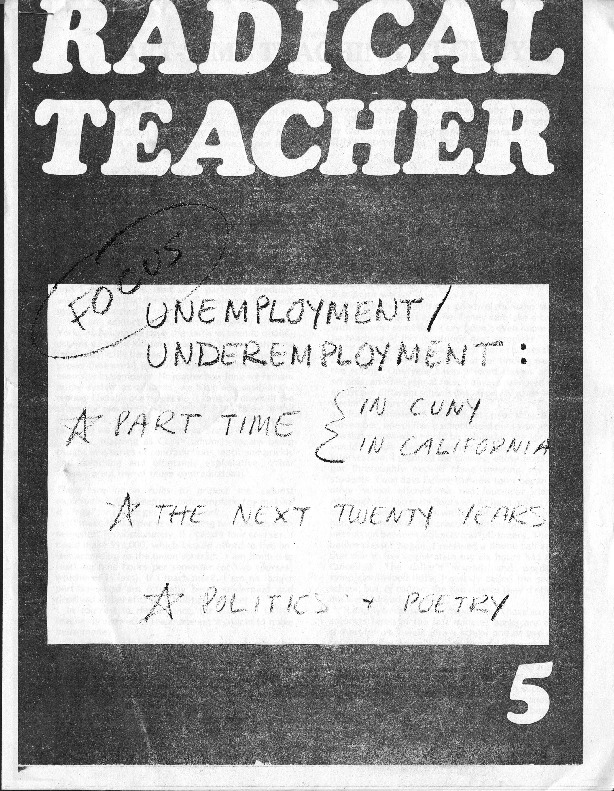 RADICAL
TEACHER
FOCUS
UNEMPLOYMENT/
UNDEREMPLOYMENT:
☆ PART TIME { IN CUNY
IN CALIFORNIA
☆ THE NEXT TWENTY YEARS
☆ POLITICS + POETRY
5